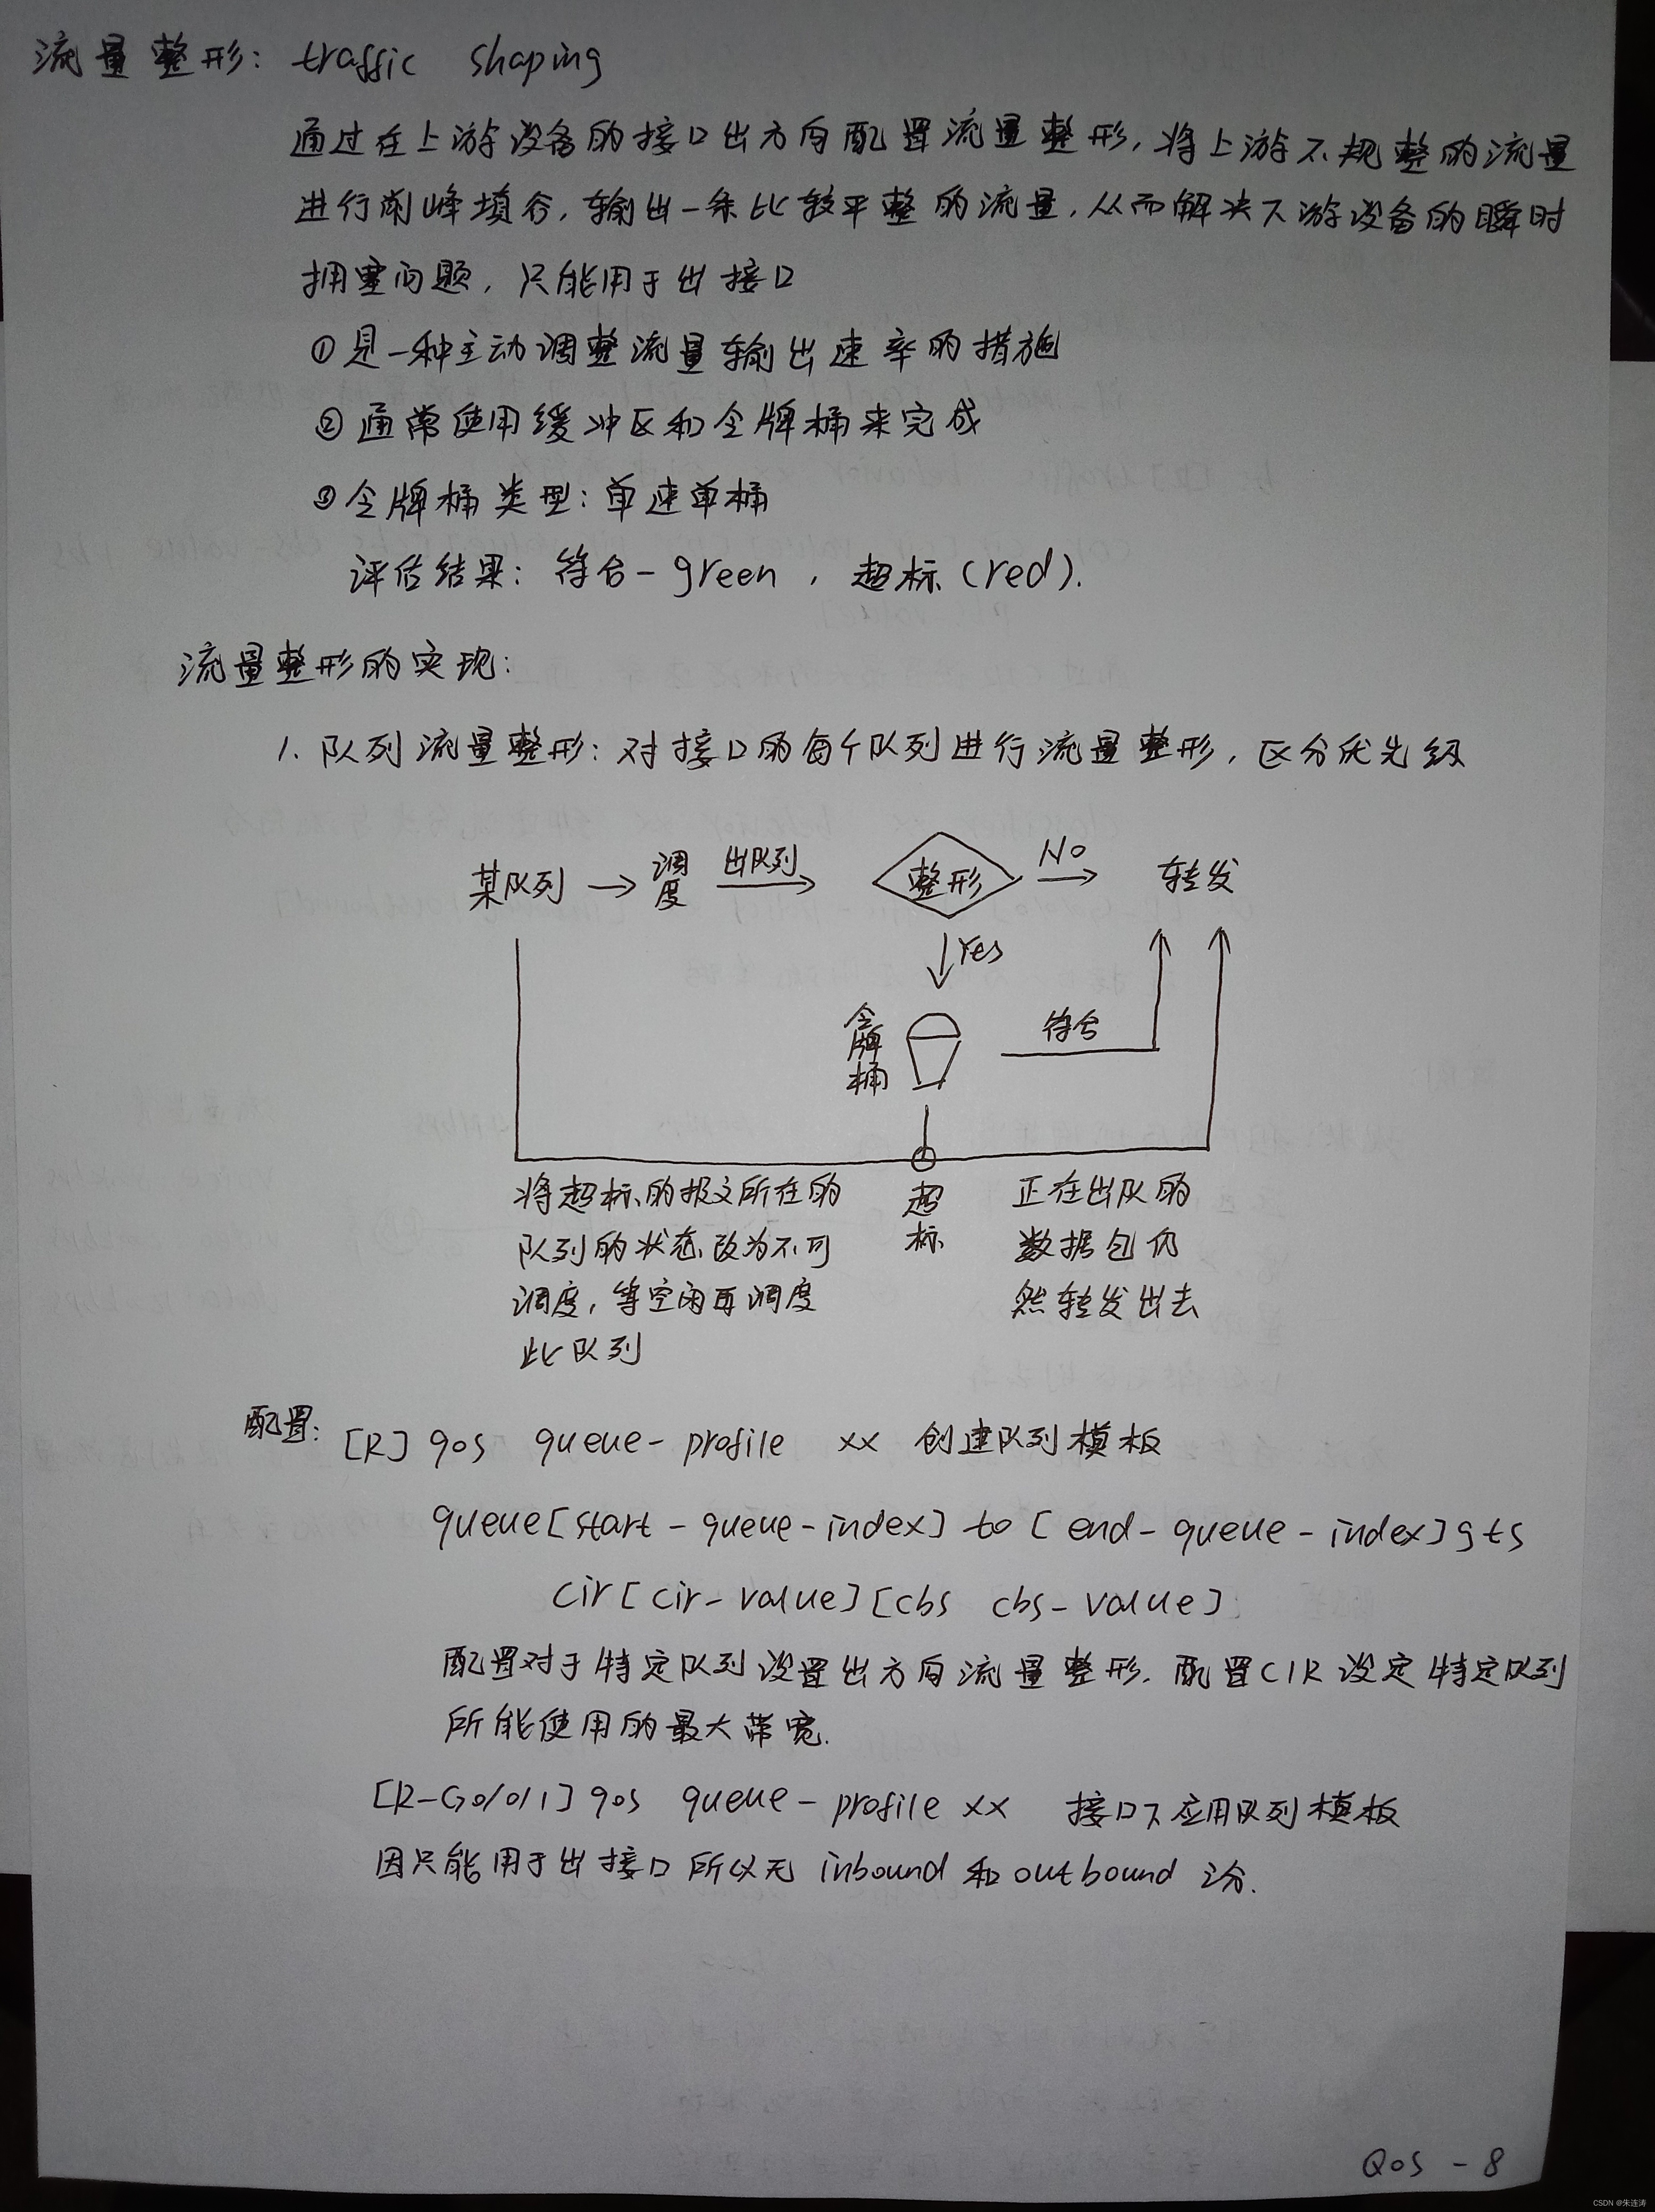 流量整形: traffic shaping
通过在上游设备的接口出方向配置流量整形, 将上游不规整的流量
进行削峰填谷, 输出一条比较平整的流量, 从而解决下游设备的瞬时
拥塞问题, 只能用于出接口
①是一种主动调整流量输出速率的措施
②通常使用缓冲区和令牌桶来完成
③令牌桶类型: 单速单桶
评估结果: 符合-green, 超标(red).
流量整形的实现:
1. 队列流量整形: 对接口的每个队列进行流量整形, 区分优先级
某队列 → 调度 出队列 整形 No 转发
Yes
令牌桶 符合
将超标的报文所在的
队列的状态改为不可
调度, 等空闲再调度
此队列
超标
正在出队的
数据包仍
然转发出去
配置: [R] qos queue-profile xx 创建队列模板
queue[start-queue-index] to [end-queue-index] gts
cir[cir-value][cbs cbs-value]
配置对于特定队列设置出方向流量整形. 配置CIR设定特定队列
所能使用的最大带宽.
[R-G0/0/1] qos queue-profile xx 接口下应用队列模板
因只能用于出接口所以无 inbound 和 outbound 之分.
QoS - 8
CSDN @朱连涛